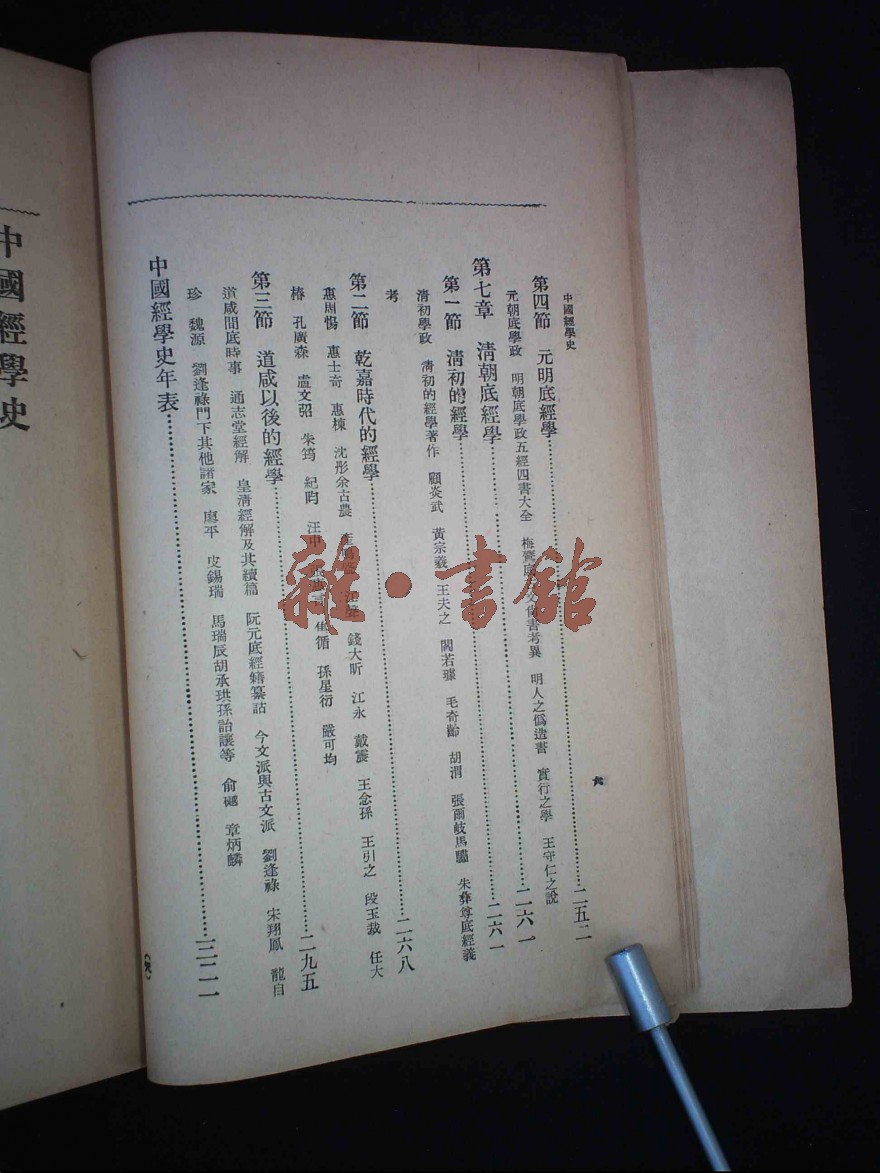 中國經學史
六
第四節　元明底經學…………二五二
元朝底學政　明朝底學政五經四書大全　梅鷟底　文尚書考異　明人之僞造書　實行之學　王守仁之說
第七章　清朝底經學…………二六一
第一節　清初的經學…………二六一
清初學政　清初的經學著作　顧炎武　黃宗羲　王夫之　閻若璩　毛奇齡　胡渭　張爾岐馬驌　朱彝尊底經義
考
第二節　乾嘉時代的經學…………二六八
惠周惕　惠士奇　惠棟　沈彤余古農　王鳴盛　江聲　錢大昕　江永　戴震　王念孫　王引之　段玉裁　任大
椿　孔廣森　盧文弨　朱筠　紀昀　汪中　張惠言　焦循　孫星衍　嚴可均
第三節　道咸以後的經學…………二九五
道咸間底時事　通志堂經解　皇清經解及其續篇　阮元底經籍纂詁　今文派與古文派　劉逢祿　宋翔鳳　龍自
珍　魏源　劉逢祿門下其他諸家　廖平　皮錫瑞　馬瑞辰胡承珙孫詒讓等　俞樾　章炳麟
中國經學史年表…………三二一
中國經學史
雜·書館